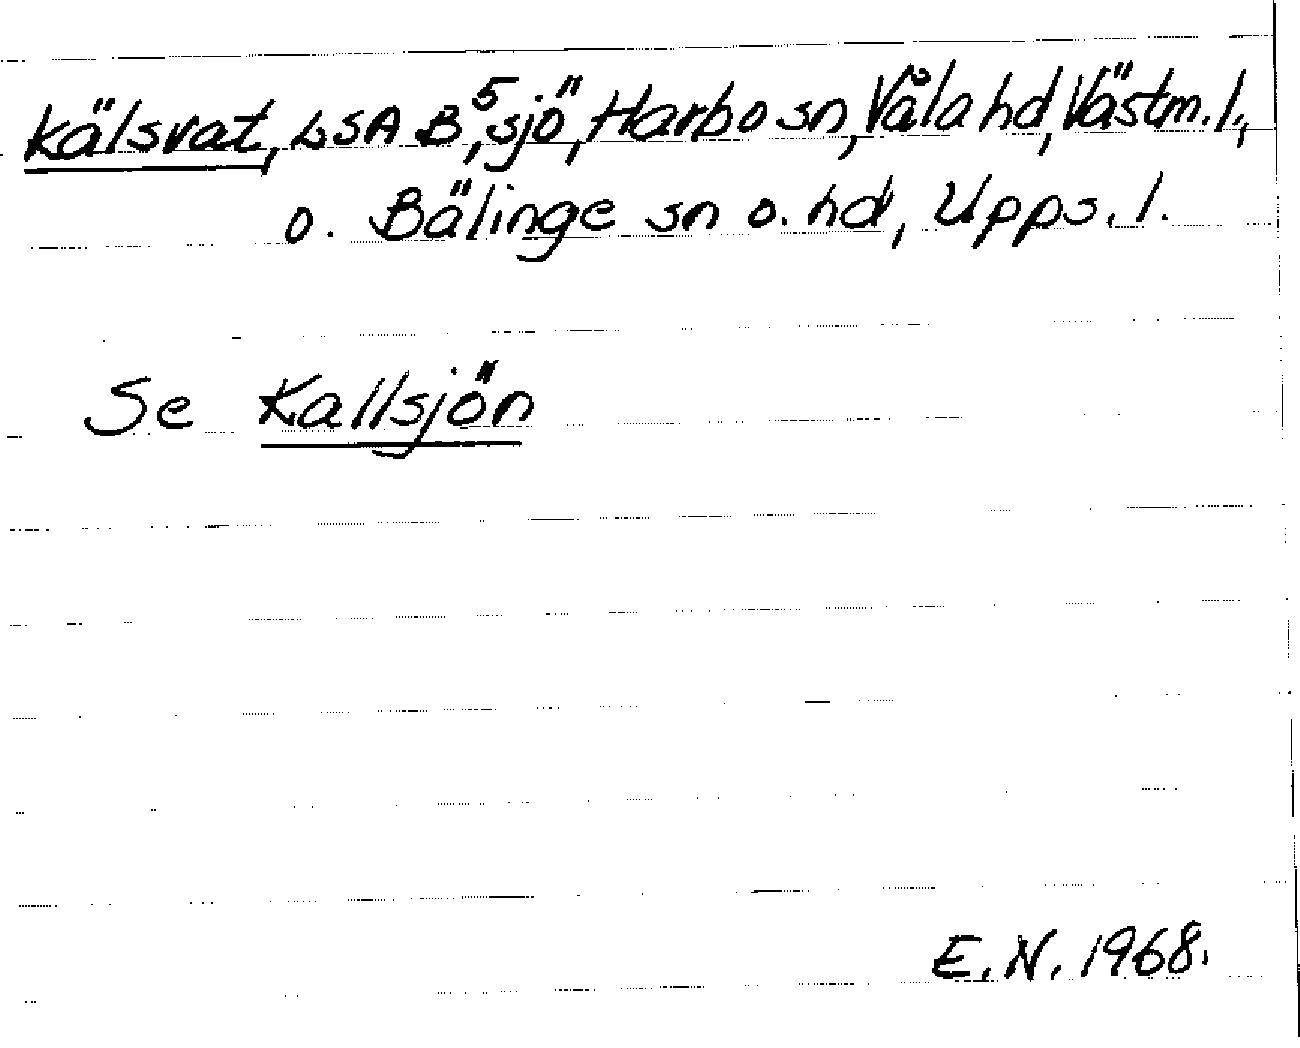 Kälsvat, LSA B⁵, sjö, Harbo sn, Våla hd, Västm. l.,
o. Bälinge sn o. hd, Upps. l.
Se Kallsjön
E. N. 1968.